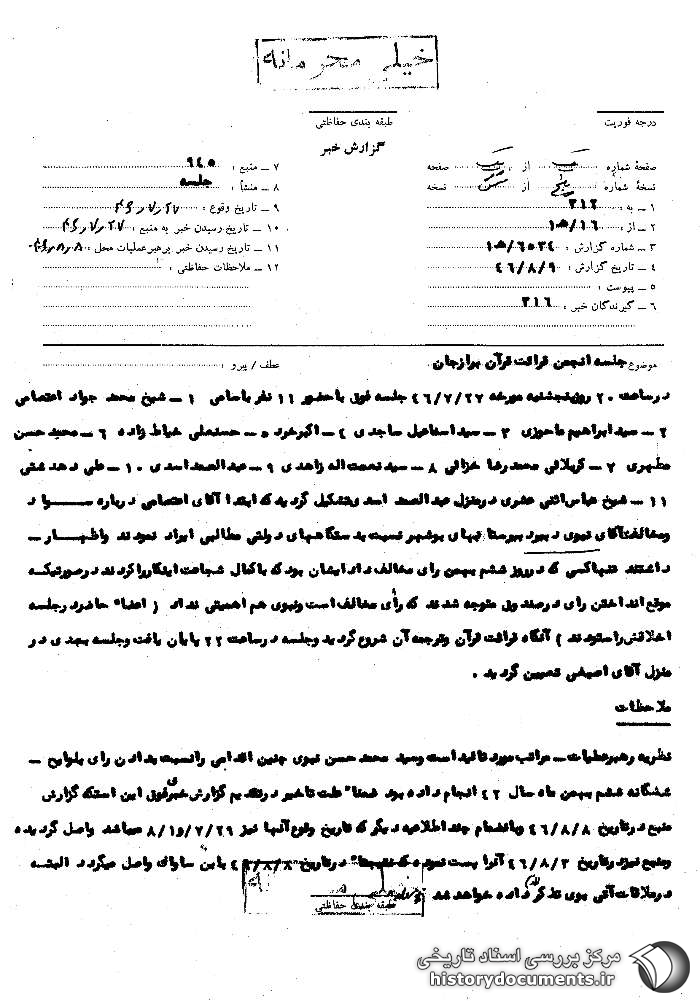 خیلی محرمانه
درجه فوریت
طبقه بندی حفاظتی
گزارش خبر
صفحهٔ شماره یک از یک صفحه
نسخهٔ شماره پنج از نسخه
۱ ــ به : ۳۱۲
۲ ــ از : ۱۶/ﻫ۱
۳ ــ شماره گزارش : ۶۵۳۴/ﻫ۱
۴ ــ تاریخ گزارش : ۴۶/۸/۹
۵ ــ پیوست :
۶ ــ گیرندگان خبر : ۳۱۶
۷ ــ منبع : ۹۴۵
۸ ــ منشأ : جلسه
۹ ــ تاریخ وقوع : ۴۶/۷/۲۷
۱۰ ــ تاریخ رسیدن خبر به منبع : ۴۶/۷/۲۷
۱۱ ــ تاریخ رسیدن خبر برهبرعملیات محل : ۴۶/۸/۸
۱۲ ــ ملاحظات حفاظتی :
موضوع : جلسه انجمن قرائت قرآن برازجان
عطف / پیرو :
درساعت ۲۰ روزپنجشنبه مورخه ۴۶/۷/۲۷ جلسه فوق باحضور ۱۱ نفر باسامی ۱ ــ شیخ محمد جواد اعتصامی
۲ ــ سیدابراهیم ماحوزی ۳ ــ سیداسماعیل ساجدی ۴ ــ اکبرخرد ۵ ــ حسنعلی خیاط زاده ۶ ــ محمدحسن
مطهری ۷ ــ کربلائی محمدرضا خزائی ۸ ــ سیدنعمت اله زاهدی ۹ ــ عبدالصمد اسدی ۱۰ ــ علی دهدشتی
۱۱ ــ شیخ عباس اثنی عشری درمنزل عبدالصمد اسدی تشکیل گردید که ابتدا آقای اعتصامی درباره سواد
ومخالفت آقای نبوی دبیر دبیرستانهای بوشهر نسبت بدستگاههای دولتی مطالبی ایراد نمودند واظهار ــ
داشتند تنهاکسی که درروز ششم بهمن رای مخالف داد ایشان بود که باکمال شجاعت اینکارراکردند درصورتیکه
موقع انداختن رای درصندوق متوجه شدند که رأی مخالف است ونبوی هم اهمیتی نداد ( اعضاء حاضر درجلسه
اخلاقش راستودند ) آنگاه قرائت قرآن وترجمه آن شروع گردید وجلسه درساعت ۲۲ پایان یافت وجلسه بعدی در
منزل آقای اصیفی تعیین گردید .
ملاحظات
نظریه رهبرعملیات ــ مراتب مورد تائید است وسید محمد حسن نبوی چنین اقدامی رانسبت بدادن رای بلوایح ــ
ششگانه ششم بهمن ماه سال ۴۲ انجام داده بود ضمناً علت تاخیر درتقدیم گزارش خبری فوق این استکه گزارش
منبع درتاریخ ۴۶/۸/۸ وبانضمام چند اطلاعیه دیگر که تاریخ وقوع آنها نیز ۷/۲۹ و ۸/۱ میباشد واصل گردیده
ومنبع نیز درتاریخ ۴۶/۸/۳ آنرا پست نموده که نتیجتاً درتاریخ ۴۶/۸/۸ باین ساواک واصل میگردد البته
درملاقات آتی بوی تذکر لازم داده خواهد شد
طبقه بندی حفاظتی
مرکز بررسی اسناد تاریخی
historydocuments.ir